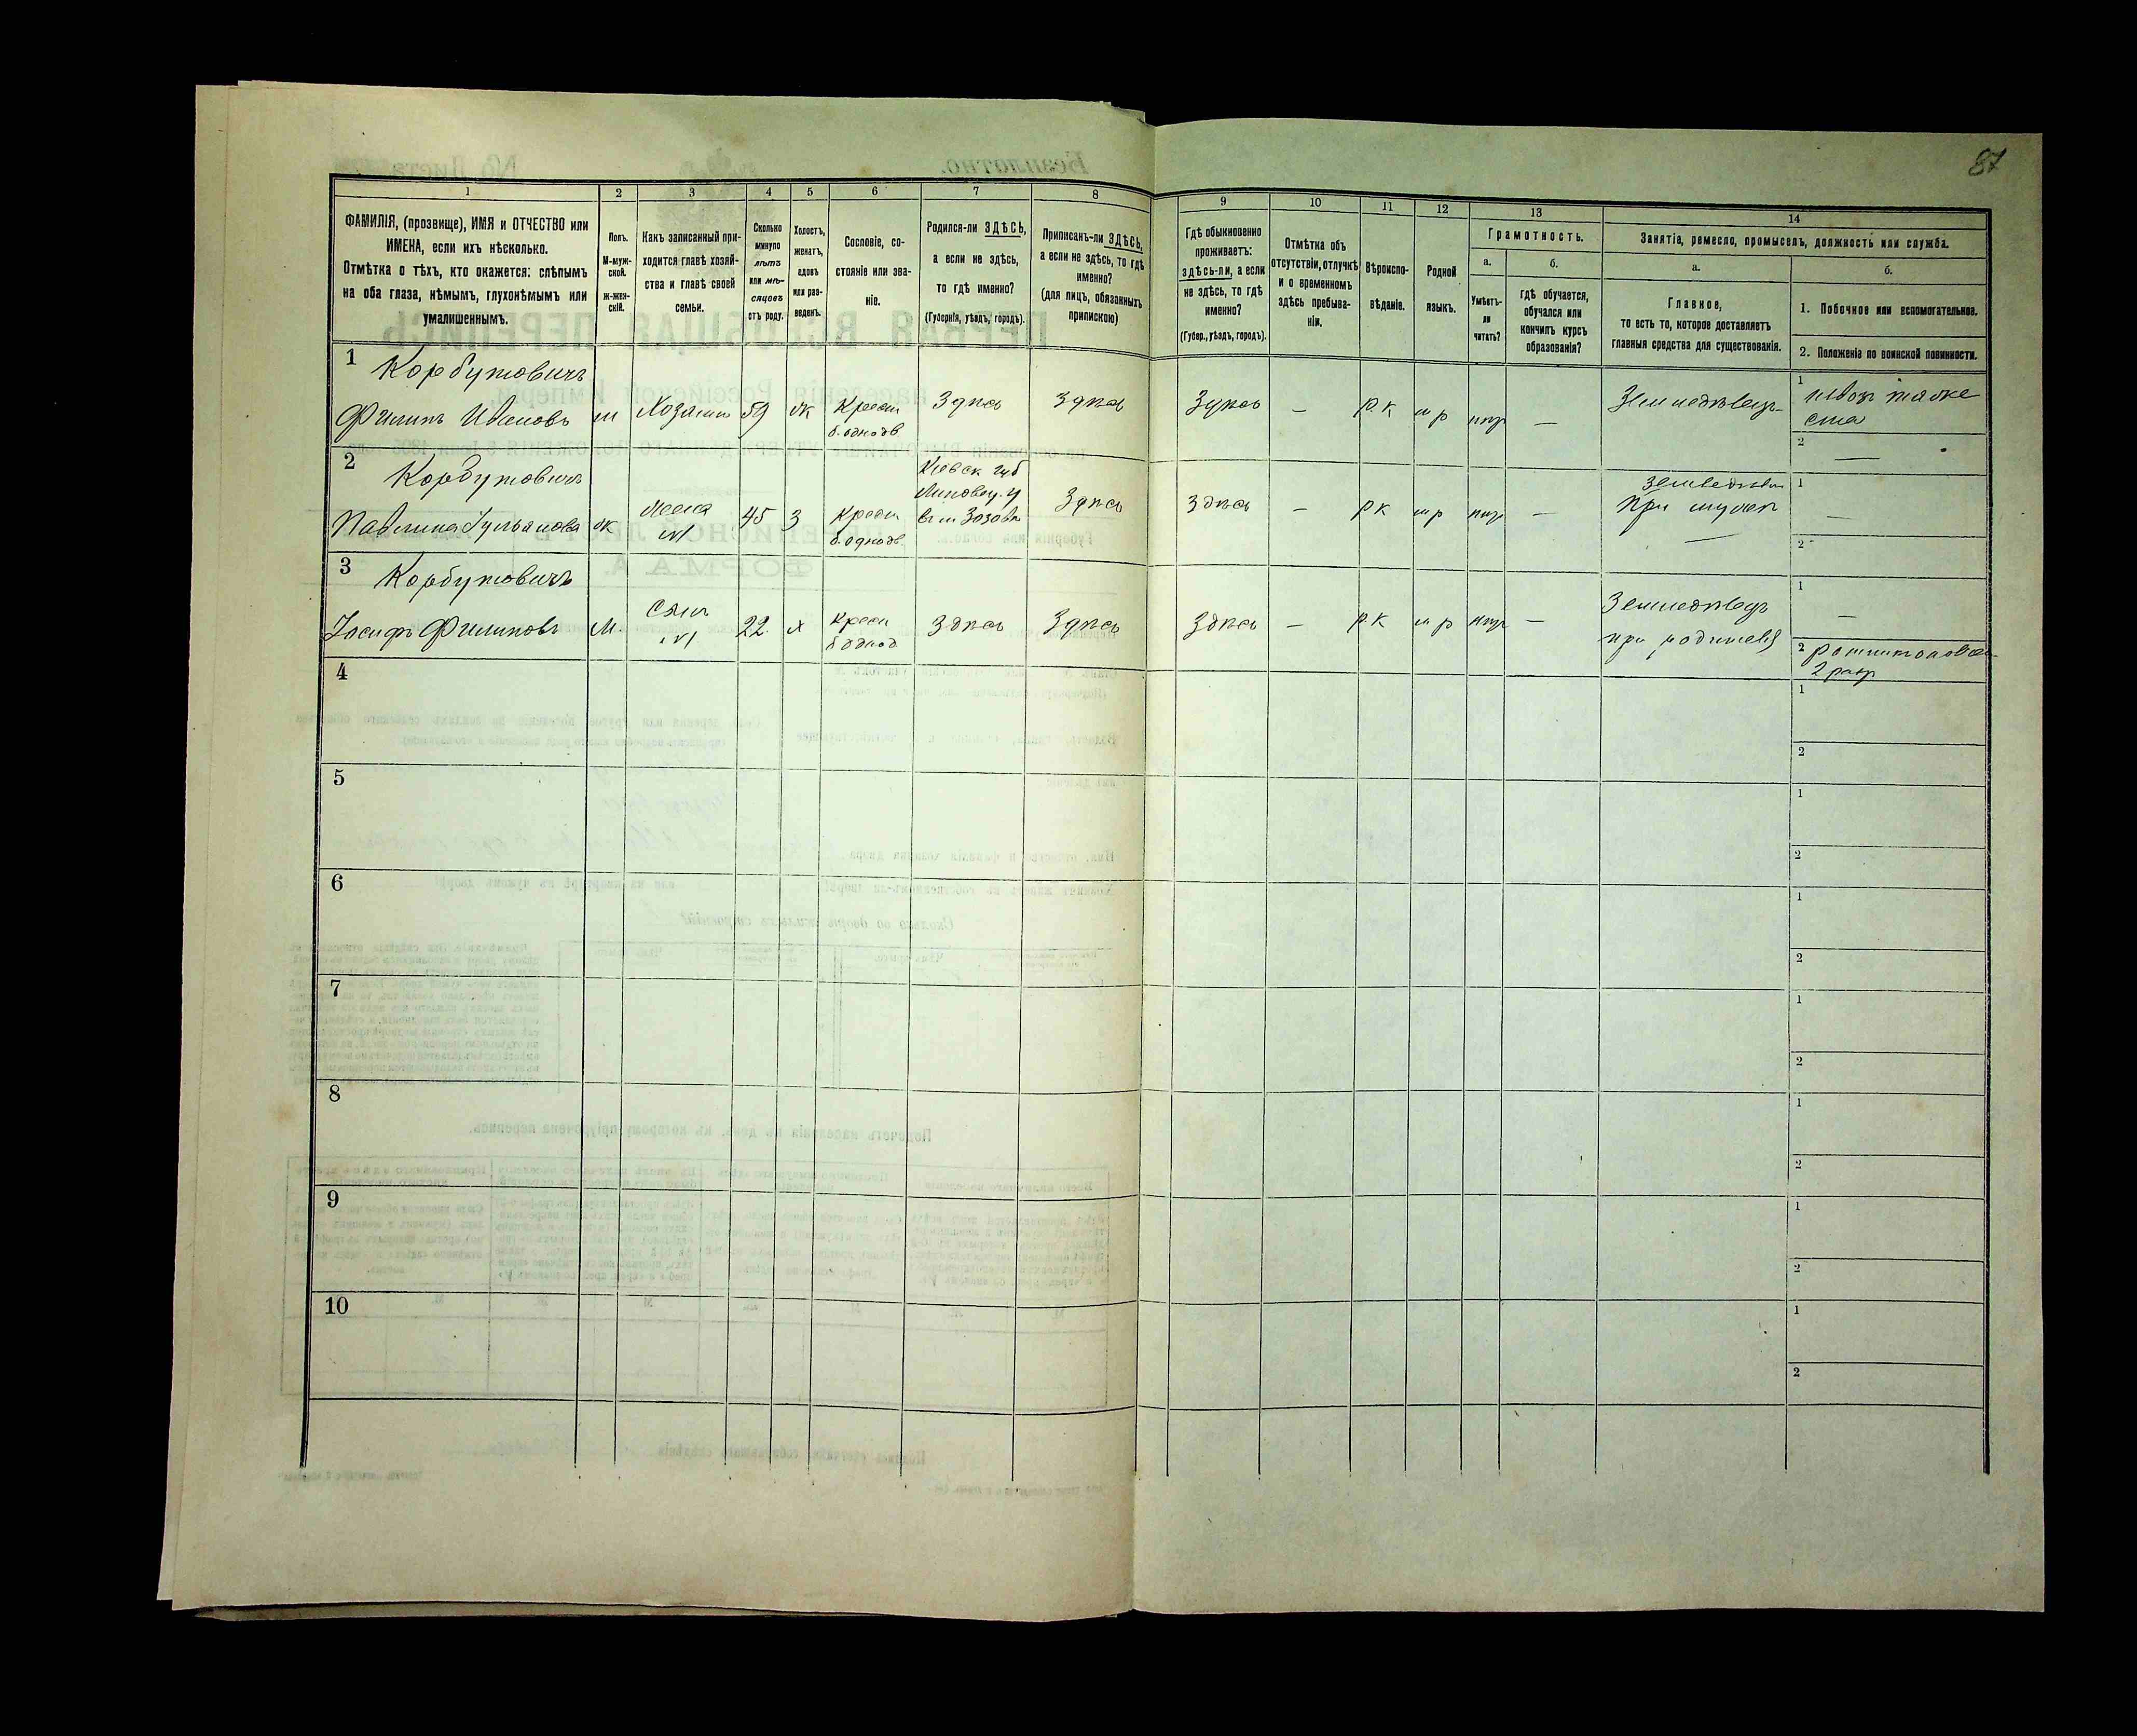 87
1 2 3 4 5 6 7 8 9 10 11 12 13 14
ФАМИЛІЯ, (прозвище), ИМЯ и ОТЧЕСТВО или
ИМЕНА, если ихъ нѣсколько.
Отмѣтка о тѣхъ, кто окажется: слѣпымъ
на оба глаза, нѣмымъ, глухонѣмымъ или
умалишеннымъ.
Полъ.
М-муж-
ской.
Ж-жен-
скій.
Какъ записанный при-
ходится главѣ хозяй-
ства и главѣ своей
семьи.
Сколько
минуло
лѣтъ
или мѣ-
сяцевъ
отъ роду.
Холостъ,
женатъ,
вдовъ
или раз-
веденъ.
Сословіе, со-
стояніе или зва-
ніе.
Родился-ли ЗДѢСЬ,
а если не здѣсь,
то гдѣ именно?
(Губернія, уѣздъ, городъ).
Приписанъ-ли ЗДѢСЬ,
а если не здѣсь, то гдѣ
именно?
(для лицъ, обязанныхъ
припискою)
Гдѣ обыкновенно
проживаетъ:
здѣсь-ли, а если
не здѣсь, то гдѣ
именно?
(Губер., уѣздъ, городъ).
Отмѣтка объ
отсутствіи, отлучкѣ
и о временномъ
здѣсь пребыва-
ніи.
Вѣроиспо-
вѣданіе.
Родной
языкъ.
Грамотность.
а.
Умѣетъ-
ли
читать?
б.
Гдѣ обучается,
обучался или
кончилъ курсъ
образованія?
Занятіе, ремесло, промыселъ, должность или служба.
а.
Главное,
то есть то, которое доставляетъ
главныя средства для существованія.
б.
1. Побочное или вспомогательное.
2. Положеніе по воинской повинности.
1 Корбутовичъ
Филипъ Ивановъ м Хозяинъ 59 ж Крест
б. однодв. Здѣсь Здѣсь Здѣсь — р к м р — Земледѣлецъ
1
2 —
2 Корбутовичъ
Павлина Ульянова ж Жена 45 з Крест
б. однодв. Кіевск губ
Липовец. у
Здѣсь Здѣсь — р к м р —
при мужѣ
1 —
2
3 Корбутовичъ
Іосифъ Филиповъ М. Сынъ 22 х Крест
б однод. Здѣсь Здѣсь Здѣсь — р к м р — Земледѣлец
при родителя
1 —
2
2 разр
4 1
2
5 1
2
6 1
2
7 1
2
8 1
2
9 1
2
10 1
2